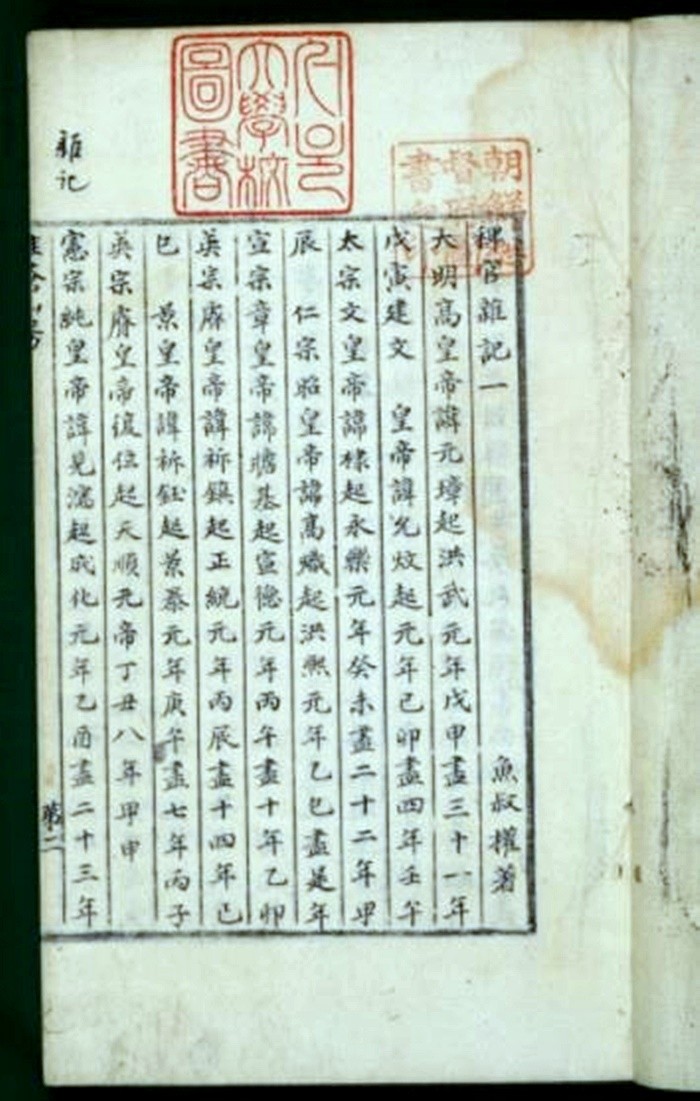 서울
大學校
圖書
朝鮮
督
書
雜记
稗官雜記一 魚叔權著
大明高皇帝諱元璋起洪武元年戊申盡三十一年
戊寅建文 皇帝諱允炆起元年己卯盡四年壬午
太宗文皇帝諱棣起永樂元年癸未盡二十二年甲
辰 仁宗昭皇帝諱高熾起洪熙元年乙巳盡是年
宣宗章皇帝諱瞻基起宣德元年丙午盡十年乙卯
英宗睿皇帝諱祈鎮起正統元年丙辰盡十四年己
巳 景皇帝諱祈鈺起景泰元年庚午盡七年丙子
英宗睿皇帝復位起天順元帝丁丑八年甲申
憲宗純皇帝諱見濡起成化元年乙酉盡二十三年
第二